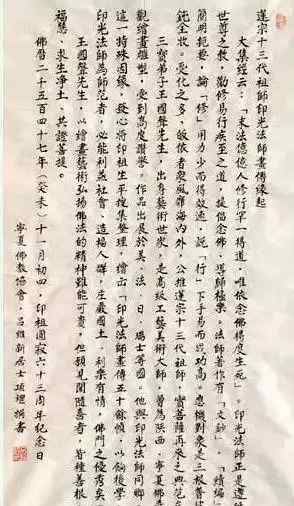 蓮宗十三代祖師印光法師畫傳緣起
大集經云：「末法億億人修行罕一得道，唯依念佛得度生死」。印光法師正是遵
世尊之教，勸修易行疾至之道，提倡念佛，導歸極樂。法師著作有「文鈔」，「續編」
簡明扼要，論「修」用力少而得效速，說「行」下手易而成功高，應機對象是三根普
鈍全收，受化之多，皈依者衆風靡海內外，公推蓮宗十三代祖師，實菩薩再來之典範
三寶弟子王國聲先生，出身藝術世家，是高級工藝美術大師，曾為陝西、寧夏佛
觀繪畫雕塑，受到高度讚譽，作品出展於美、法、日、瑞士等國。他與印光法師同鄉
這一特殊因緣，發心將印祖生平搜集整理，繪出「印光法師畫傳五十餘幀，以餉後學
印光法師為師范者，必能利益社會，造福人群，莊嚴國土，利樂有情，佛門之優秀矣
王國聲先生，以繪畫藝術弘揚佛法的精神難能可貴，但願見聞隨喜者，皆種善根
福慧，求生淨土，共證菩提。
佛曆二千五百四十七年（癸未）十一月初四，印祖圓寂六十三周年紀念日
寧夏佛教協會，呂維新居士